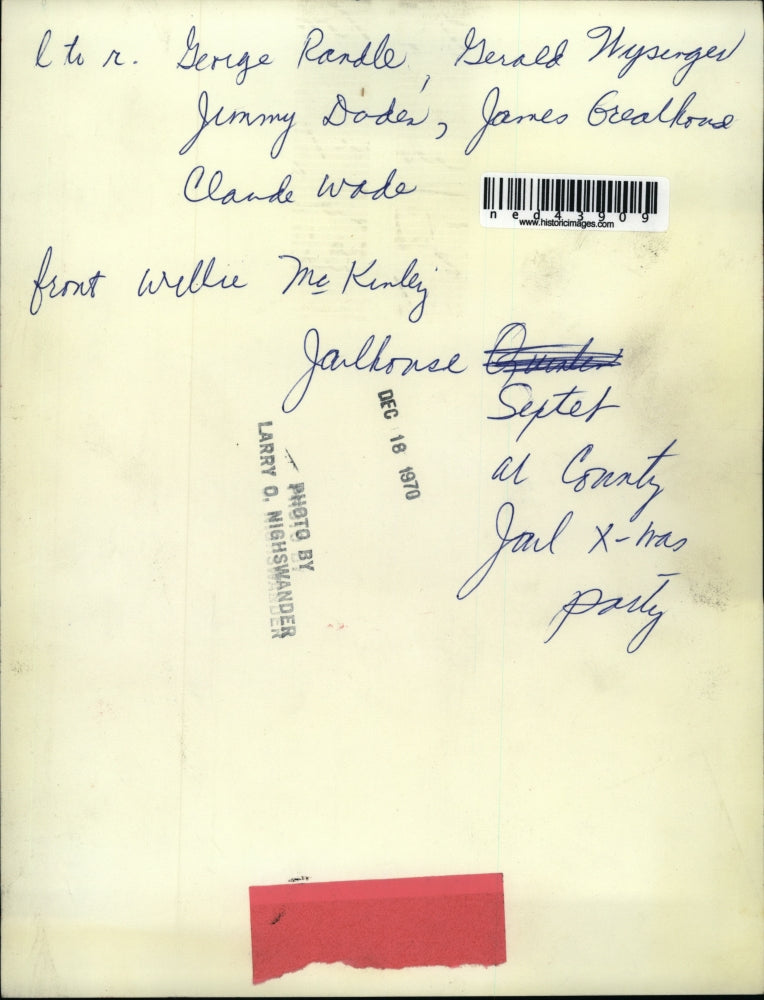 l to r. George Randle, Gerald Wysinger
Jimmy Doden, James Greathouse
Claude Wade
ned43909
www.historicimages.com
front Willie McKinley
Jailhouse
Septet
at County
Jail X-mas
party
DEC 18 1970
PHOTO BY
LARRY O. NIGHSWANDER